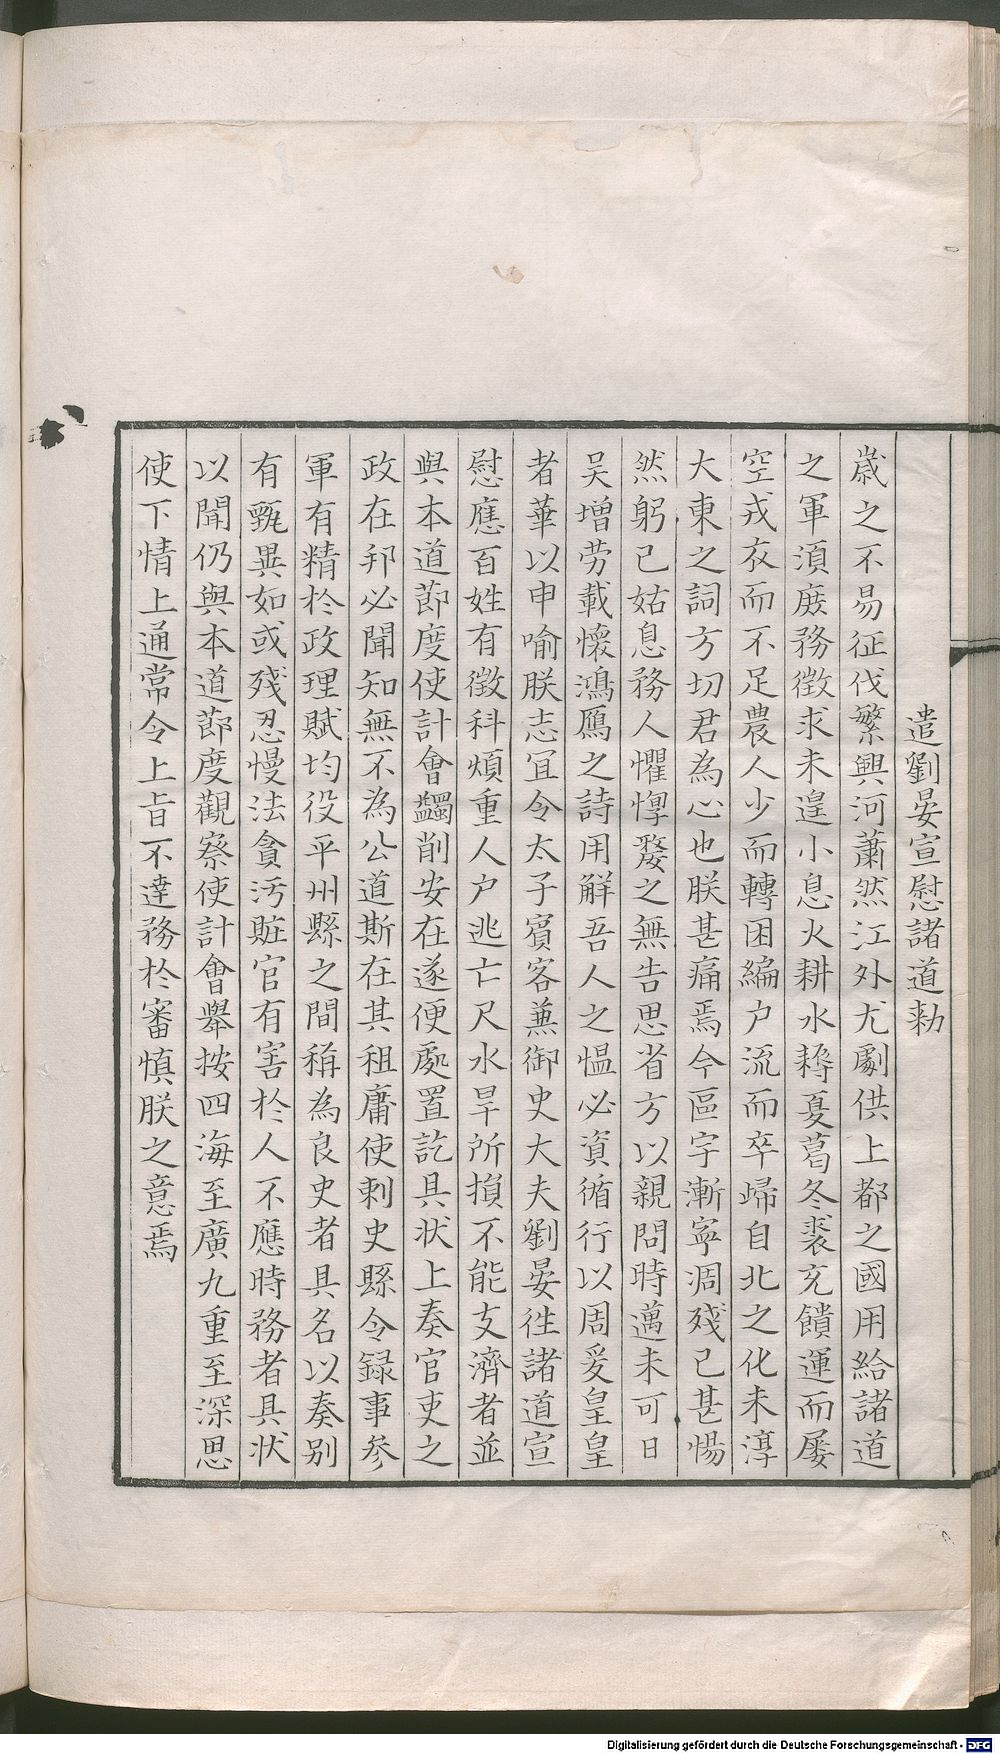 遣劉晏宣慰諸道勅
歲之不易征伐繁興河蕭然江外尤劇供上都之國用給諸道
之軍須庻務徵求未遑小息火耕水耨夏葛冬裘充饋運而屡
空戎衣而不足農人少而轉困編户流而卒歸自北之化未淳
大東之詞方切君為心也朕甚痛焉今區宇漸寧凋殘已甚惕
然躬已姑息務人懼惸嫠之無告思省方以親問時邁未可日
吴增劳載懷鴻鴈之詩用觧吾人之愠必資循行以周爰皇皇
者華以申喻朕志冝令太子賓客兼御史大夫劉晏徃諸道宣
慰應百姓有徵科煩重人户逃亡尺水旱所損不能支濟者並
與本道莭度使計會蠲削安在遂便處置訖具状上奏官吏之
政在邦必聞知無不為公道斯在其租庸使刺史縣令録事参
軍有精於政理賦均役平州縣之間稱為良史者具名以奏别
有甄異如或殘忍慢法貪汚賍官有害於人不應時務者具状
以聞仍與本道莭度觀察使計會舉按四海至廣九重至深思
使下情上通常令上㫖不達務於審慎朕之意焉
Digitalisierung gefördert durch die Deutsche Forschungsgemeinschaft - DFG